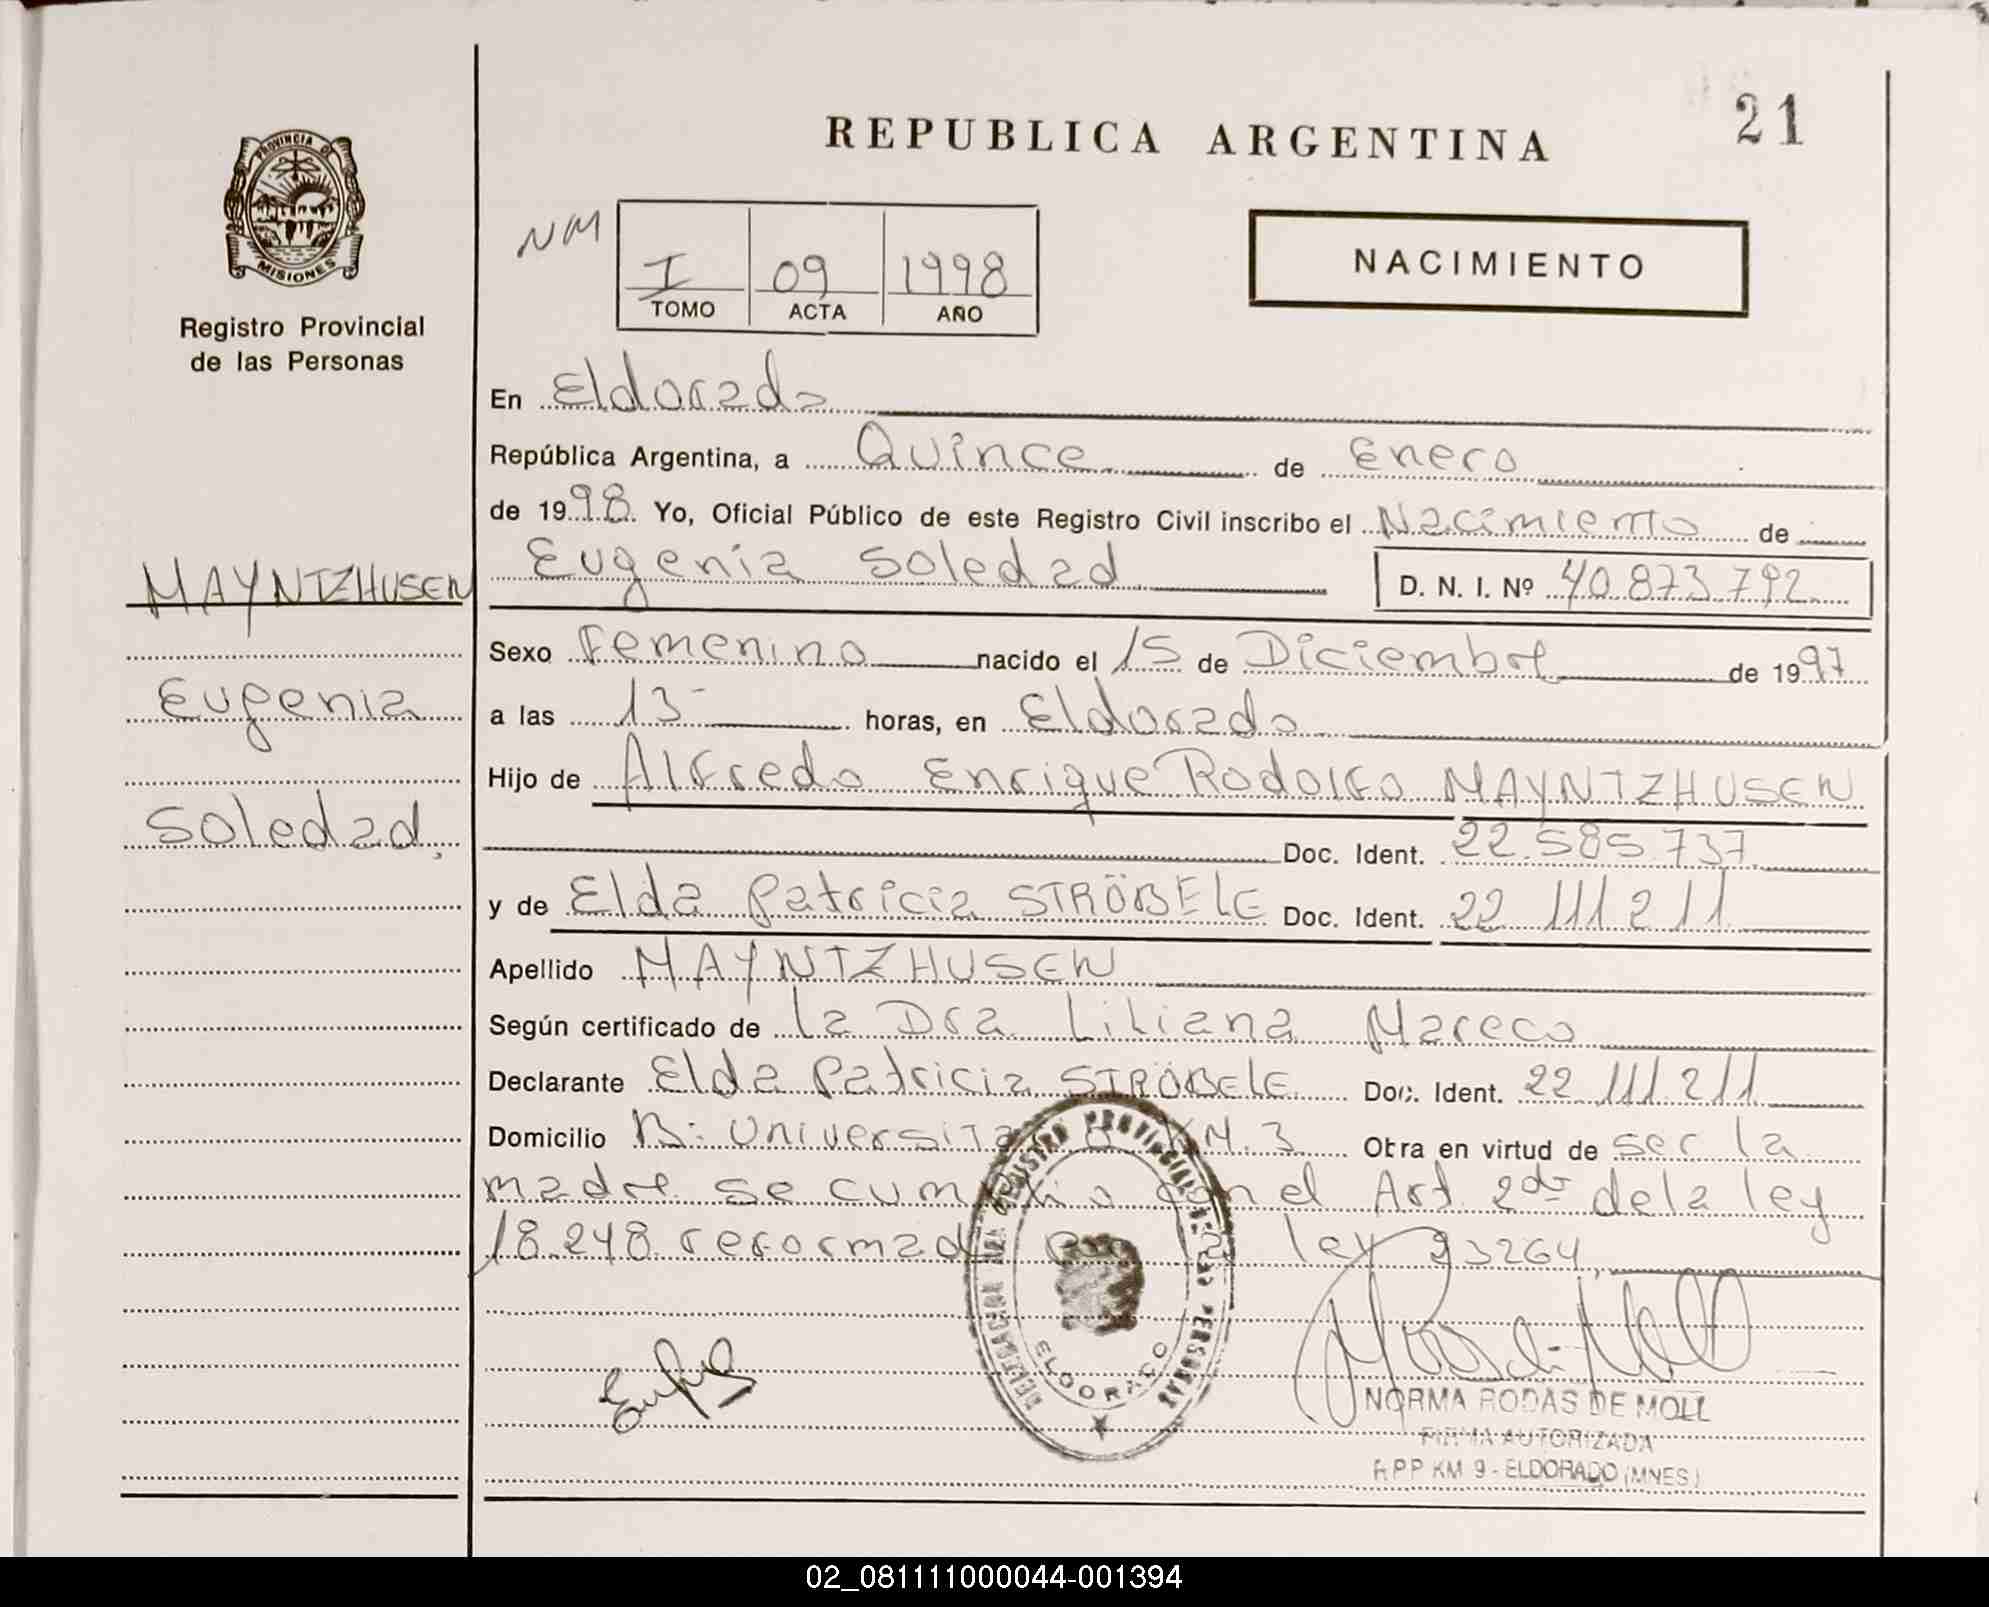 REPUBLICA ARGENTINA
21
PROVINCIA DE
MISIONES
Registro Provincial
de las Personas
NM
I
09
1998
TOMO
ACTA
AÑO
NACIMIENTO
En Eldorado
República Argentina, a Quince de Enero
de 1998 Yo, Oficial Público de este Registro Civil inscribo el Nacimiento de
MAYNTZHUSEN
Eugenia Soledad
D. N. I. Nº 40.873.792
Sexo Femenino nacido el 15 de Diciembre de 1997
Eugenia
a las 13- horas, en Eldorado
Hijo de Alfredo Enrique Rodolfo MAYNTZHUSEN
Soledad,
Doc. Ident. 22.585.737
y de Elda Patricia STRÖBELE Doc. Ident. 22.111.211
Apellido MAYNTZHUSEN
Según certificado de la Dra Liliana Mareco
Declarante Elda Patricia STRÖBELE Doc. Ident. 22.111.211
Domicilio B: Universitario KM.3 Otra en virtud de ser la
madre se cumplio con el Art. 2do de la ley
18.248 reformado por la ley 23264,
DELEGACION REGISTRO PROVINCIAL DE LAS PERSONAS
ELDORADO
NORMA RODAS DE MOLL
FIRMA AUTORIZADA
R.P.P KM 9 - ELDORADO (MNES.)
02_081111000044-001394